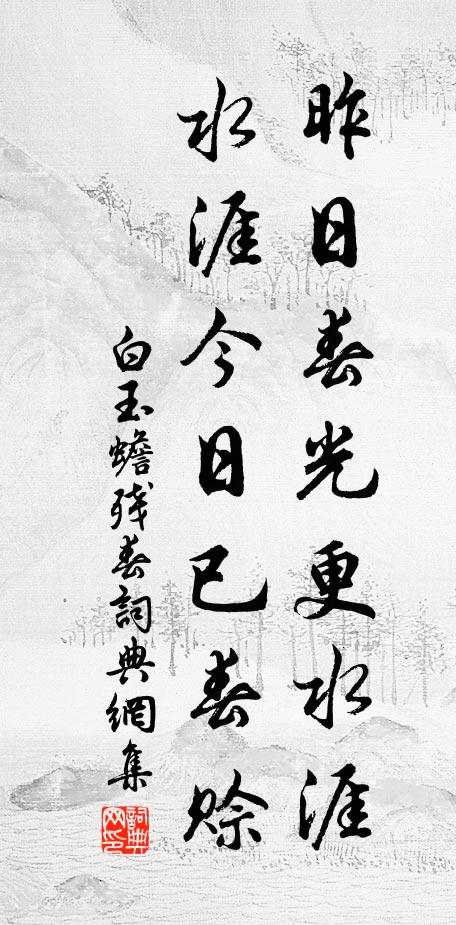 昨日春光更水涯
水涯今日已春賒
白玉蟾残春詞典網集
詞典网印